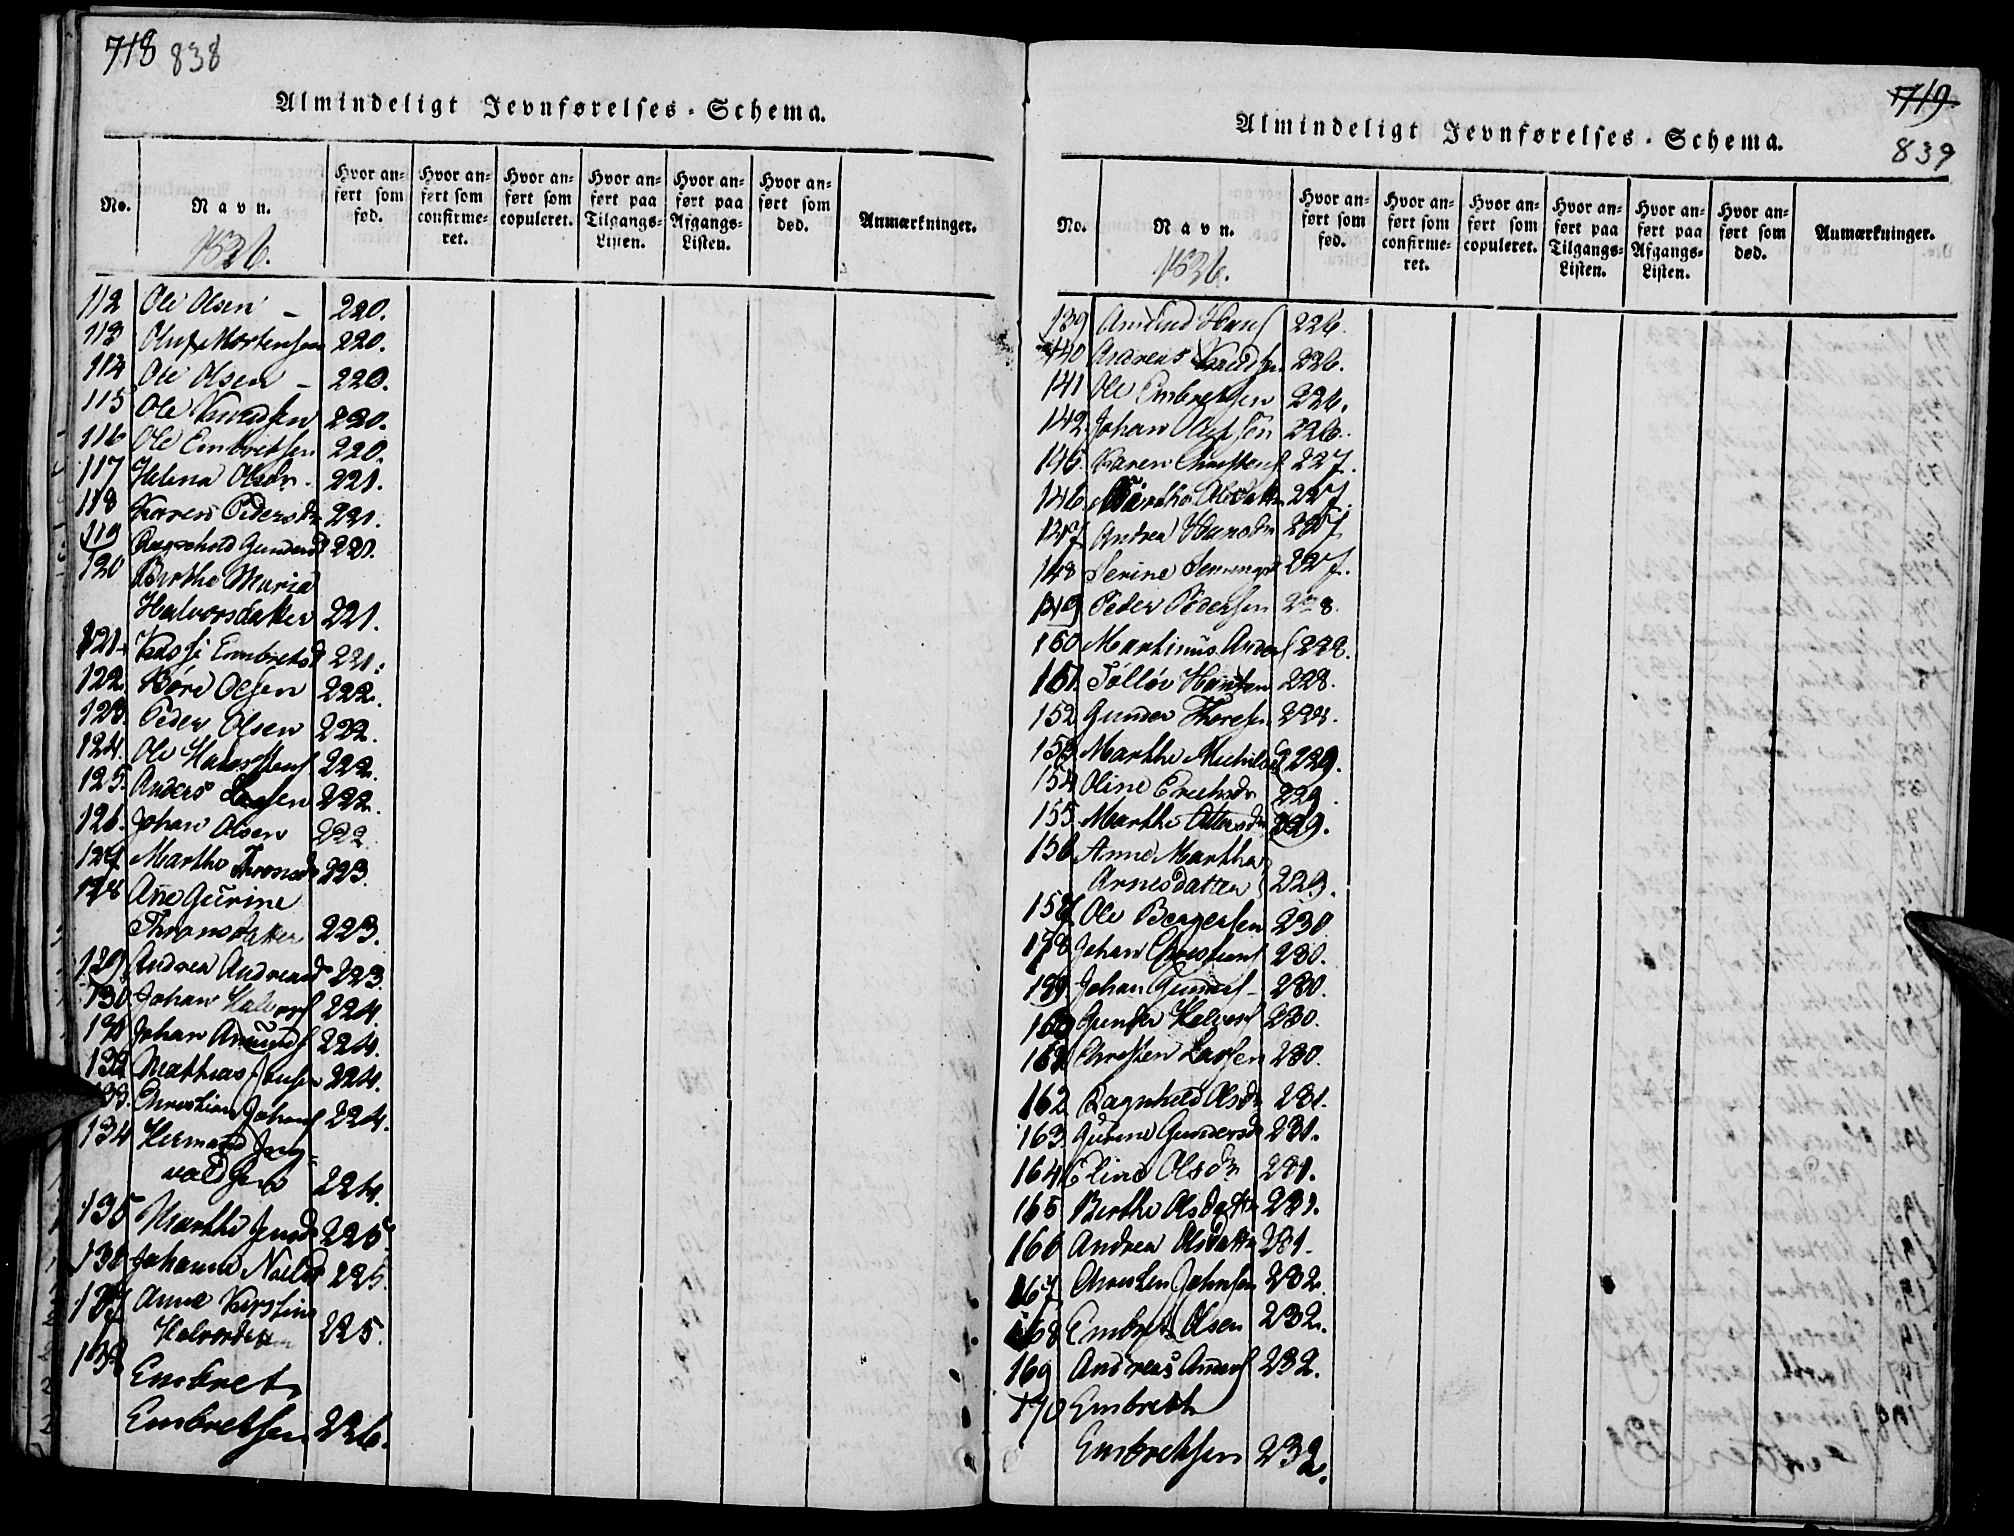 718 838
Almindeligt Jevnførelses-Schema.
No.
Navn.
1826.
Hvor anført som fød.
Hvor anført som confirmeret.
Hvor anført som copuleret.
Hvor anført paa Tilgangs-Listen.
Hvor anført paa Afgangs-Listen.
Hvor anført som død.
Anmærkninger.
112 Ole Olsen - 220.
113 Oluf Mortensen 220.
114 Ole Olsen - 220.
115 Ole Knudsen 220.
116 Ole Embretsen 220.
117 Helena Olsdr. 221.
118 Karen Pedersdr 221.
119 Ragnhold Gundersd 221.
120 Birthe Maria
Halvorsdatter 221.
121 Embretsd 221.
122 Børe Olsen 222.
123. Peder Olsen 222.
124. Ole 222.
125. Anders Larsen 222.
126. Johan Olsen 222
127 Marthe Thronsd 223.
128 Ane Gurine
Thronsdatter 223.
129 Andrea Andreasd 223.
130. Johan Halvors 224.
131 Johan Amunds 224.
132 Mathias Jensen 224.
133. Christian Johans 224.
134 Herman Jng-
valdsen 224.
135 Marthe Jensd 225
136 Johanne Nielsd 225.
137 Anne Kirstine
Halvorsdatter 225.
138 Embret
Embretsen 226.
719
839
Almindeligt Jevnførelses-Schema.
No.
Navn.
1826.
Hvor anført som fød.
Hvor anført som confirmeret.
Hvor anført som copuleret.
Hvor anført paa Tilgangs-Listen.
Hvor anført paa Afgangs-Listen.
Hvor anført som død.
Anmærkninger.
139 Amund Hans 226.
140 Andreas Knudsen 226.
141 Ole Embretsen 226.
142 Johan Olufsen 226.
145. Karen Christens 227.
146. Marthe Olsdatter 227.
147 Andrea Hansdr 227
148 Serine 227.
149 Peder Pedersen 228.
150 Martinus Anders 228.
151. Tollov Hansen 228.
152 Gunder Thoresen 228.
153 Marthe Michelsd 229.
154 Oline Erichsdr 229.
155. Marthe Ottersdr 229.
156 Anne Marthe
Arnesdatter 229.
157 Ole Bergersen 230
158 Johan Christians 230.
159 Johan Gunders - 230.
160 Gunder Halvors 230.
161 Christen Larsen 230.
162 Ragnhild Olsdr 231.
163 Gurine Gundersd 231.
164 Eline Olsdr 231.
165 Berthe Olsdattr 231.
166 Andrea Olsdattr 231.
167 Christen Johnsen 232
168 Embret Olsen 232.
169 Andreas Anders 232.
170 Embreth
Embretsen 232.